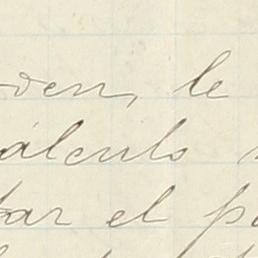 den, le
álculo
tar el p